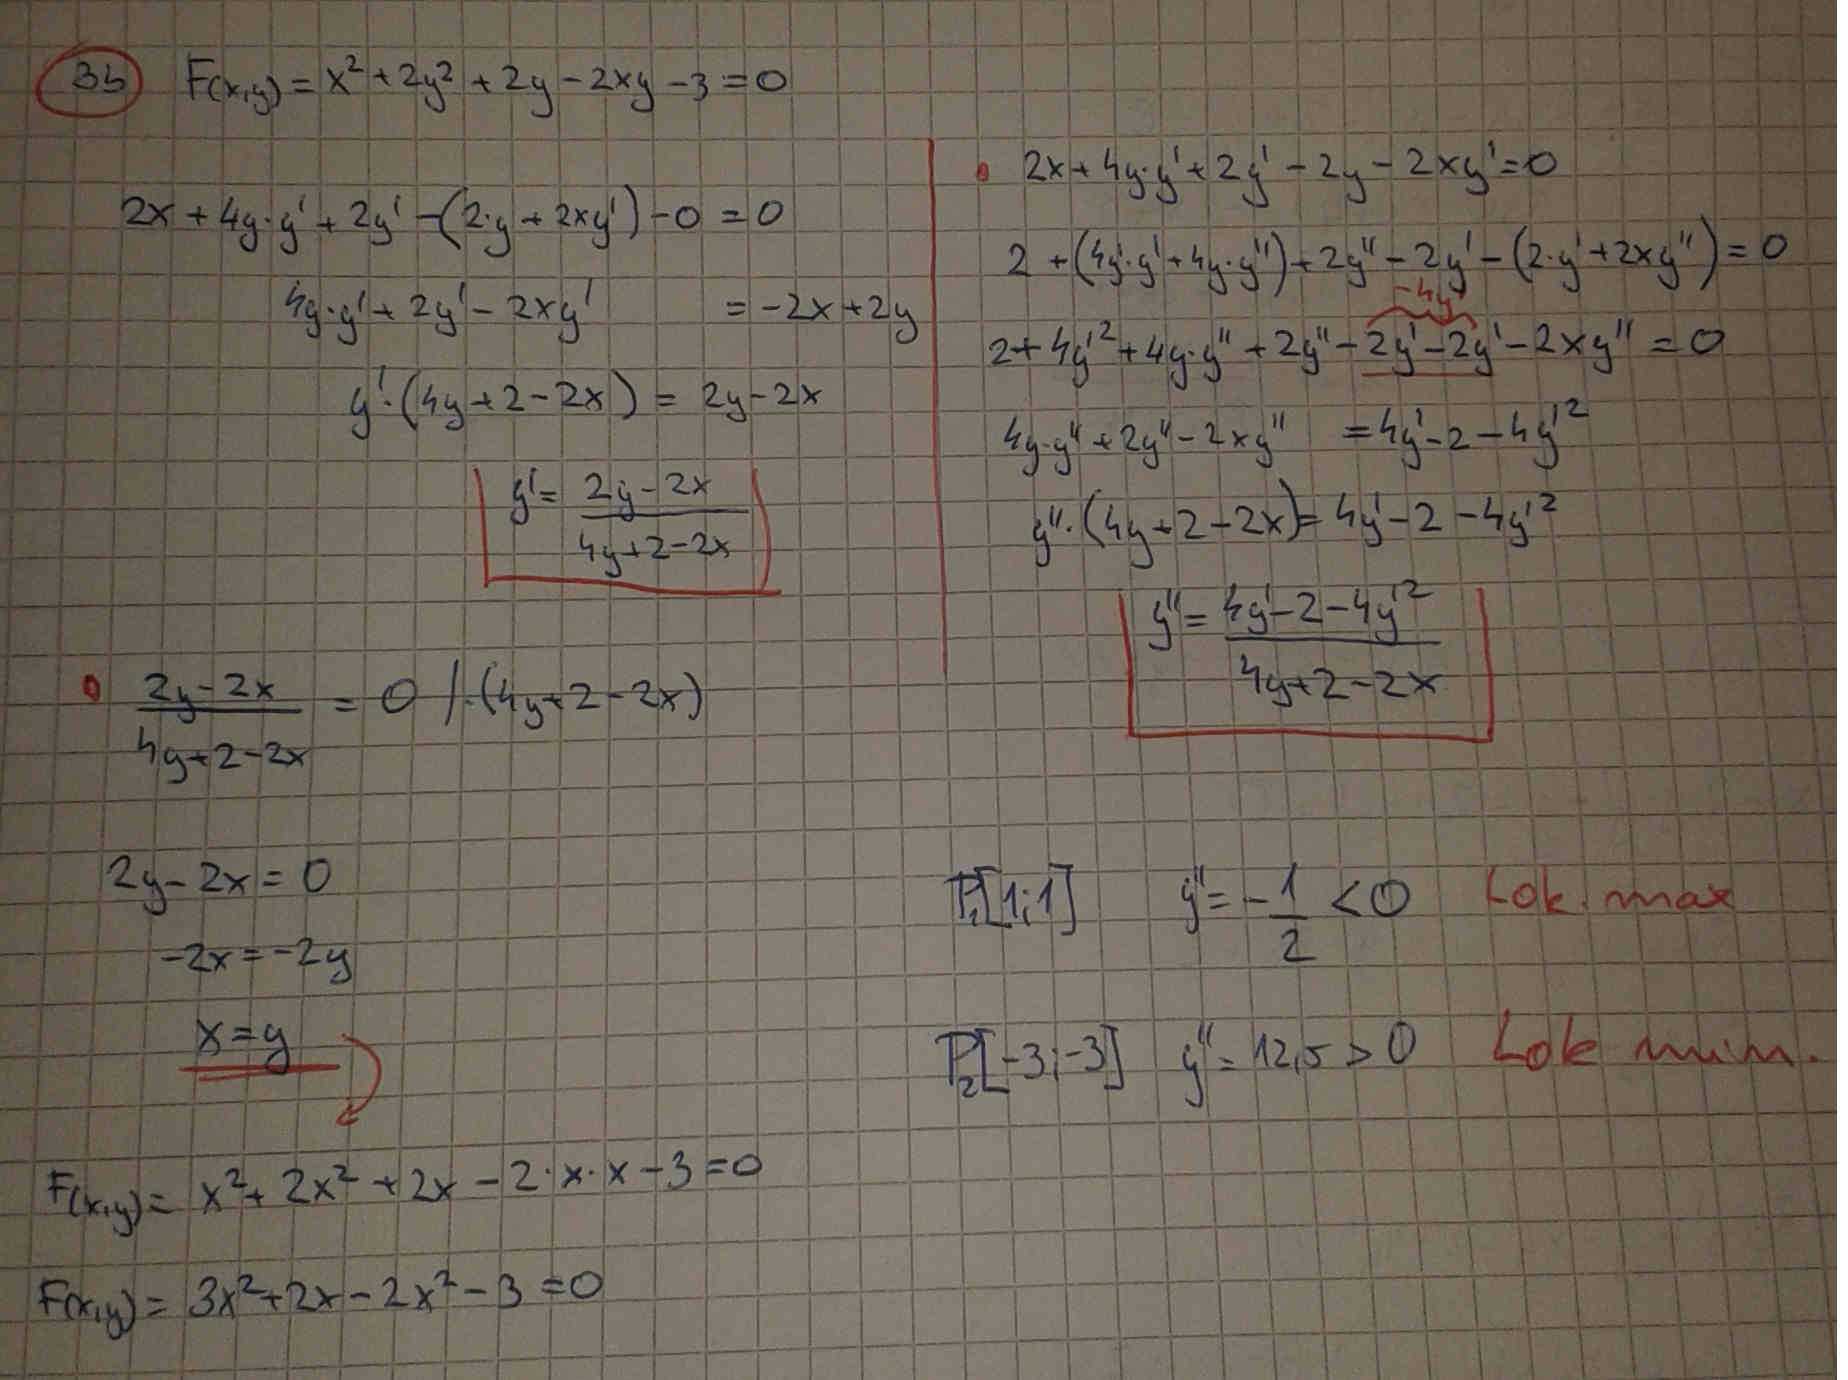 3b F(x,y) = x² + 2y² + 2y - 2xy - 3 = 0
2x + 4y·y' + 2y' - (2·y + 2xy') - 0 = 0
4y·y' + 2y' - 2xy' = -2x + 2y
y'·(4y + 2 - 2x) = 2y - 2x
y' = (2y - 2x)/(4y + 2 - 2x)
(2y - 2x)/(4y + 2 - 2x) = 0 /·(4y + 2 - 2x)
2y - 2x = 0
-2x = -2y
x = y
F(x,y) = x² + 2x² + 2x - 2·x·x - 3 = 0
F(x,y) = 3x² + 2x - 2x² - 3 = 0
2x + 4y·y' + 2y' - 2y - 2xy' = 0
2 + (4y'·y' + 4y·y'') + 2y'' - 2y' - (2·y' + 2xy'') = 0
-4y'
2 + 4y'² + 4y·y'' + 2y'' - 2y' - 2y' - 2xy'' = 0
4y·y'' + 2y'' - 2xy'' = 4y' - 2 - 4y'²
y''·(4y + 2 - 2x) = 4y' - 2 - 4y'²
y'' = (4y' - 2 - 4y'²)/(4y + 2 - 2x)
P₁[1;1] y'' = -1/2 < 0 Lok. max
P₂[-3;-3] y'' = 12,5 > 0 Lok mim.